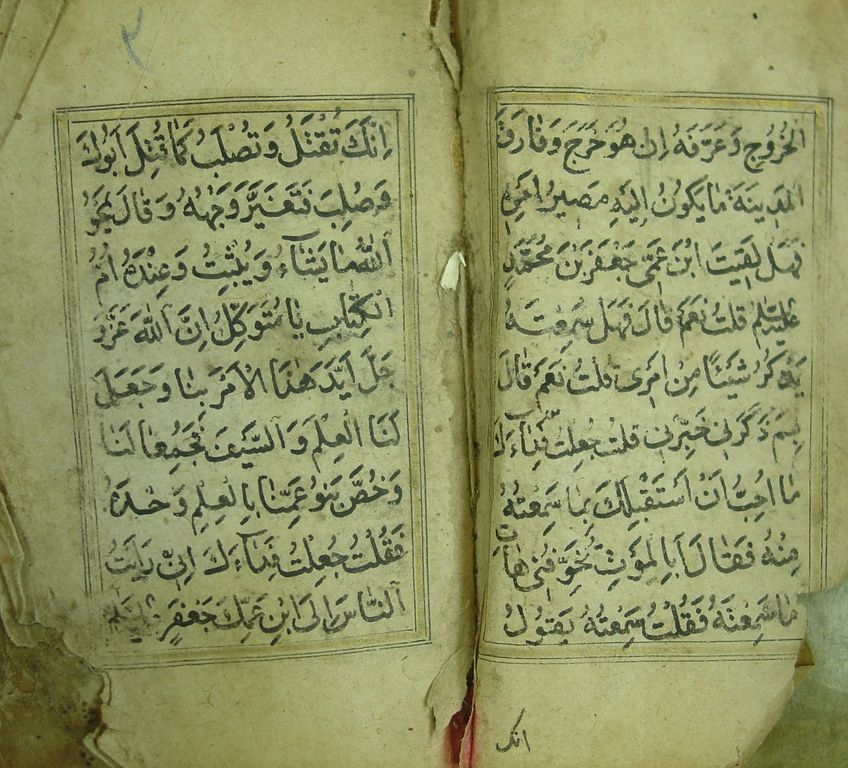 الخُرُوجِ وَعَرَّفَهُ اِن هُوَ خَرَجَ وَفٰارَقَ
المَدِينَةَ مٰا يَكُونُ اِلَيْهِ مَصِيرُ اَمْرِهِ
فَهَل لَقِيتَ ابْنَ عَمّى جَعْفَرَ بْنَ مُحَمَّدٍ
عَلَيْهِ السَّلَم قلتُ نَعَمْ قٰالَ فَهَل سَمِعْتَهُ
يَذْكُرُ شَيْئًا مِن اَمْرى قُلتُ نَعَمْ قٰالَ
بِمَ ذَكَرَنى خَبِّرنى قلتُ جُعِلتُ فِدٰاءَكَ
مٰا اُحِبُّ اَنْ اَستَقْبِلَكَ بِمٰا سَمِعْتُهُ
مِنْهُ فَقٰالَ اَبِالمَوْتِ تُخَوِّفُنى هٰاتِ
مٰا سَمِعْتَهُ فَقُلْتُ سَمِعْتُهُ يَقُولُ
انك
٢
اِنَّكَ تُقْتَلُ وَتُصْلَبُ كَمٰا قُتِلَ اَبُوكَ
وَصُلِبَ فَتَغَيَّرَ وَجْهُهُ وَقٰالَ يَمْحُو
اَللّٰهُ مٰا يَشٰاءُ وَيُثْبِتُ وَعِنْدَهُ اُمُّ
الكِتٰابِ يٰا مُتَوَكِّلُ اِنَّ اَللّٰهَ عَزَّ وَ
جَلَّ اَيَّدَ هٰذَا الاَمْرَ بِنٰا وَجَعَلَ
لَنَا العِلْمَ وَالسَّيْفَ فَجُمِعٰا لَنٰا
وَخُصَّ بَنُو عَمِّنٰا بِالعِلْمِ وَحْدَهُ
فَقُلْتُ جُعِلْتُ فِدٰاءَكَ اِنّى رَاَيْتُ
اَلنّٰاسَ اِلَى ابْنِ عَمِّكَ جَعْفَرٍ